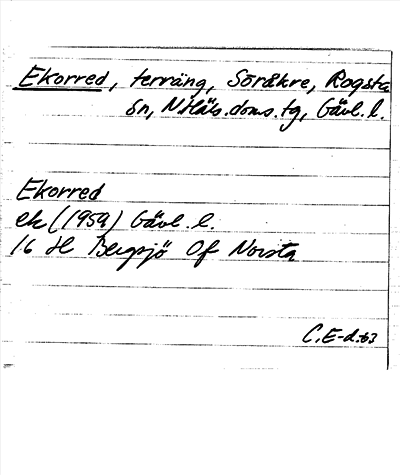 Ekorred, terräng, Söråkre, Rogsta
sn, N.Häls.doms.tg, Gävl.l.
Ekorred
ek (1959) Gävl.l.
16 H Bergsjö Of Norsta
C.E-d.63